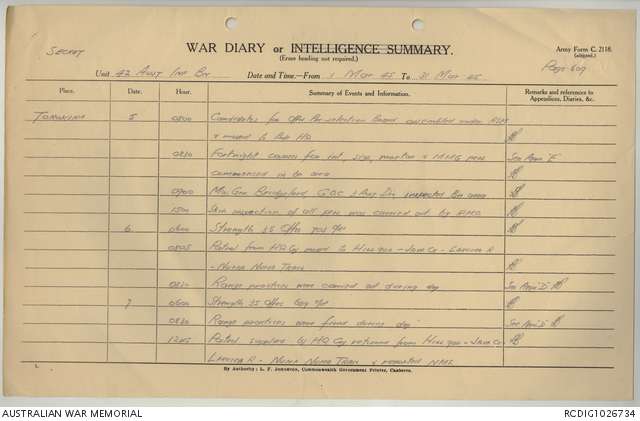 SECRET
WAR DIARY or INTELLIGENCE SUMMARY.
(Erase heading not required.)
Army Form C. 2118.
(adapted.)
Page 609
Unit 42 Aust Inf Bn Date and Time.—From 1 Mar 45 To 31 Mar 45
Place. Date. Hour. Summary of Events and Information. Remarks and references to Appendices, Diaries, &c.
TOROKINA 5 0800 Candidates for Offr Pre-selection Board assembled under
& moved to HQ
0830 Fortnight courses for int, sig, mortar & MMG pers See Appx "E"
commenced in bn area
0900 Maj Gen Bridgeford, GOC 3 Aust Div, inspected Bn area
1500 Skin inspection of all pers was carried out by RMO
6 0600 Strength 35 Offrs
0805 Patrol from HQ Coy moved to HILL 700 - JAVA CK - LARUMA R
- NUMA NUMA TRAIL
0830 Range practices were carried out during day See Appx "D"
7 0600 Strength 35 Offrs 609
0830 Range practices were fired during day See Appx "D"
1245 Patrol supplied by HQ Coy returned from HILL 700 - JAVA CK -
LARUMA R - NUMA NUMA TRAIL & reported
1.
By Authority: L. F. JOHNSTON, Commonwealth Government Printer, Canberra.
AUSTRALIAN WAR MEMORIAL
RCDIG1026734